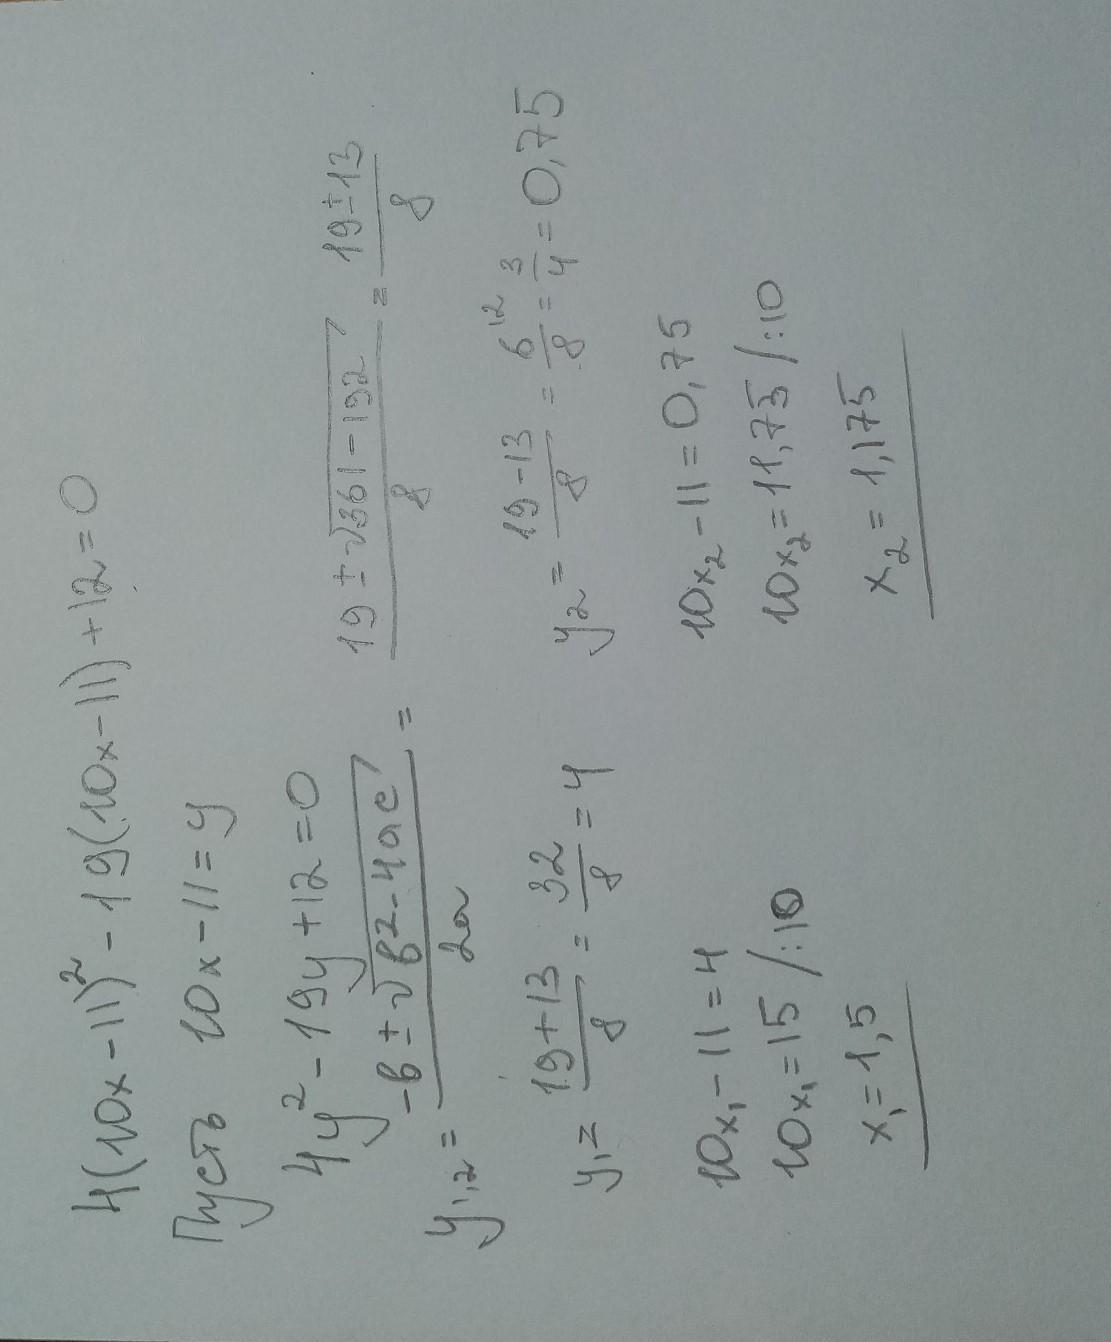 4(10x-11)² - 19(10x-11)+12=0
Пусть 10x-11=y
4y² - 19y+12=0
y₁,₂ = (-в ± √(в²-4ac))/2a = (19 ± √(361-192))/8 = (19±13)/8
y₁ = (19+13)/8 = 32/8 = 4 y₂ = (19-13)/8 = 6/8 |2 = 3/4 = 0,75
10x₁-11=4 10x₂-11=0,75
10x₁=15 /:10 10x₂=11,75 /:10
x₁=1,5 x₂=1,175